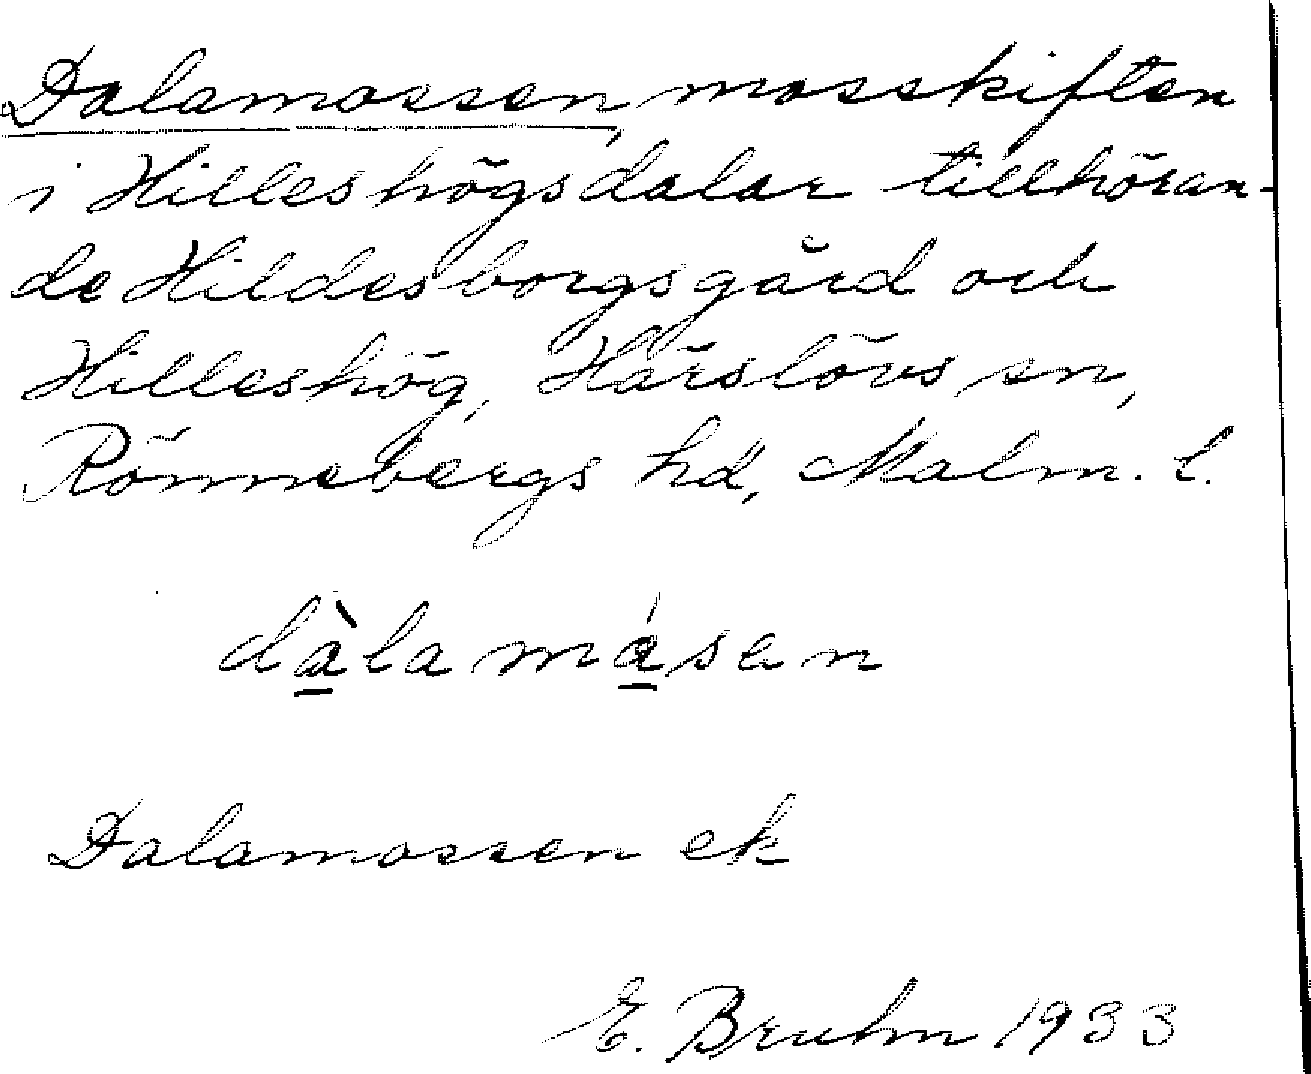 Dalamossen, mosskiften
i Hilleshögsdalar tillhöran-
de Hildesborgsgård och
Hilleshög, Härslövs sn,
Rönnebergs hd, Malm. l.
dàla másen
Dalamossen ek
E. Bruhn 1933